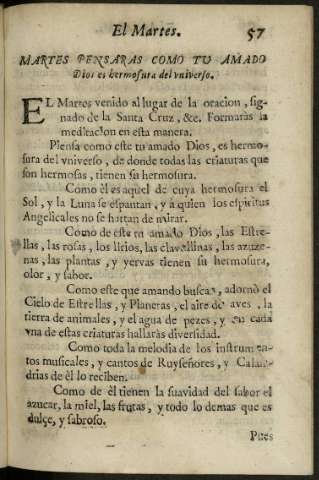 El Martes. 57
MARTES PENSARAS COMO TU AMADO
Dios es hermosura del vniverso.
EL Martes venido al lugar de la oracion, sig-
nado de la Santa Cruz, &c. Formaràs la
meditacion en esta manera.
Piensa como este tu amado Dios, es hermo-
sura del vniverso, de donde todas las criaturas que
son hermosas, tienen su hermosura.
Como èl es aquel de cuya hermosura el
Sol, y la Luna se espantan, y à quien los espiritus
Angelicales no se hartan de mirar.
Como de este tu amado Dios, las Estre-
llas, las rosas, los lirios, las clavellinas, las azuze-
nas, las plantas, y yervas tienen su hermosura,
olor, y sabor.
Como este que amando buscas, adornò el
Cielo de Estrellas, y Planetas, el aire de aves, la
tierra de animales, y el agua de pezes, y en cada
vna de estas criaturas hallaràs diversidad.
Como toda la melodia de los instrumen-
tos musicales, y cantos de Ruyseñores, y Calan-
drias de èl lo reciben.
Como de èl tienen la suavidad del sabor el
azucar, la miel, las frutas, y todo lo demas que es
dulçe, y sabroso.
Pues